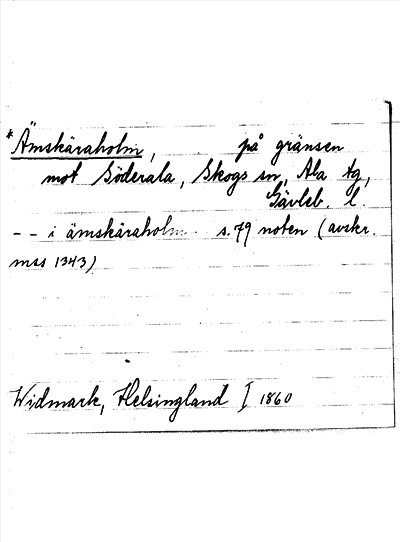 *Ämskäraholm, på gränsen
mot Söderala, Skogs sn, Ala tg,
Gävleb. l.
-- i ämskäraholm s. 79 noten (avskr.
mss 1343)
Widmark, Helsingland I 1860